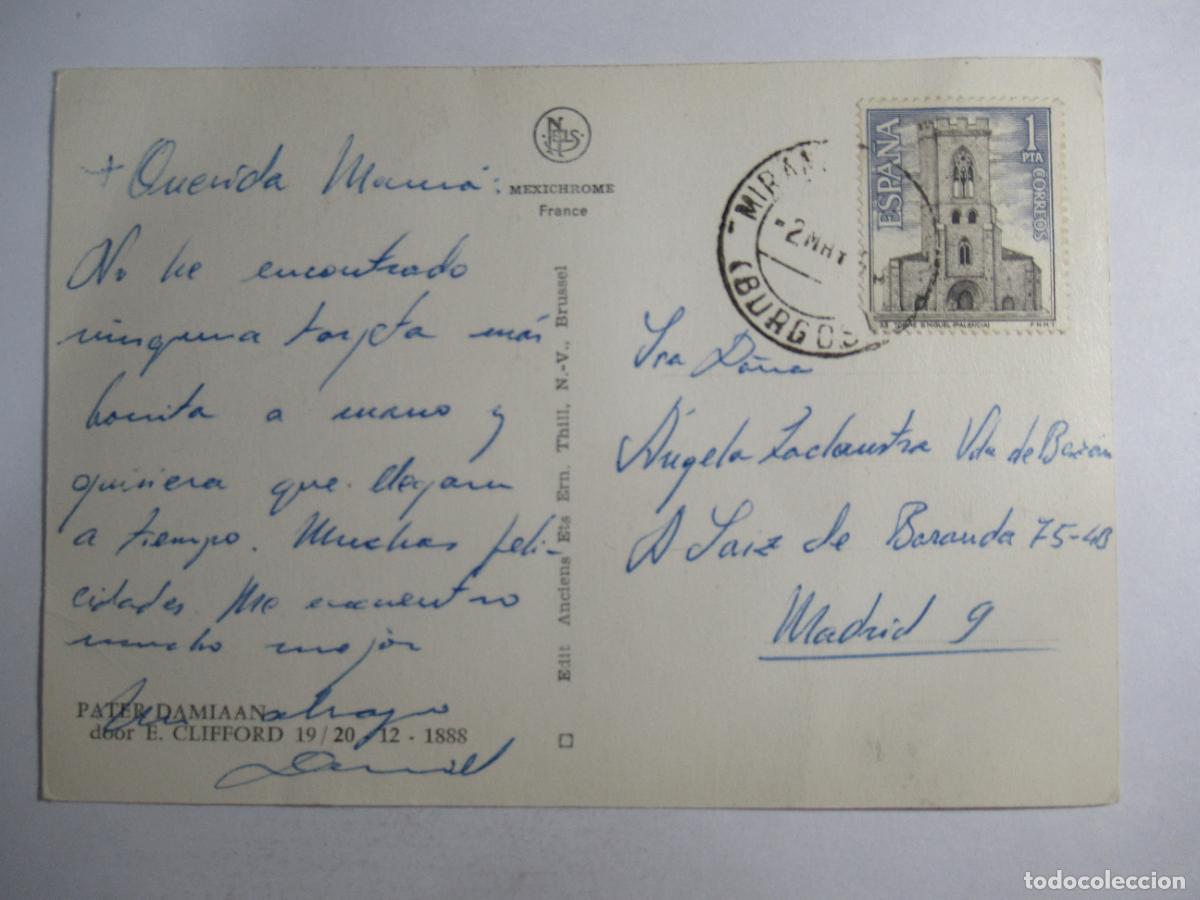 + Querida Mamá:
No he encontrado
ninguna tarjeta más
bonita a mano y
quisiera que llegara
a tiempo. Muchas feli-
cidades. Me encuentro
mucho mejor
Un abrazo
Daniel
PATER DAMIAAN
door E. CLIFFORD 19/20-12-1888
NELS
MEXICHROME
France
Edit Anciens Ets Ern. Thill, N.-V., Brussel
MIRAN
-2 MAY
(BURGOS
ESPAÑA
1 PTA
CORREOS
TORRE S.MIGUEL (PALENCIA)
F.N.M.T
Sra Doña
Ángela Vda de
A Saiz de Baranda 75-4B
Madrid 9
todocoleccion